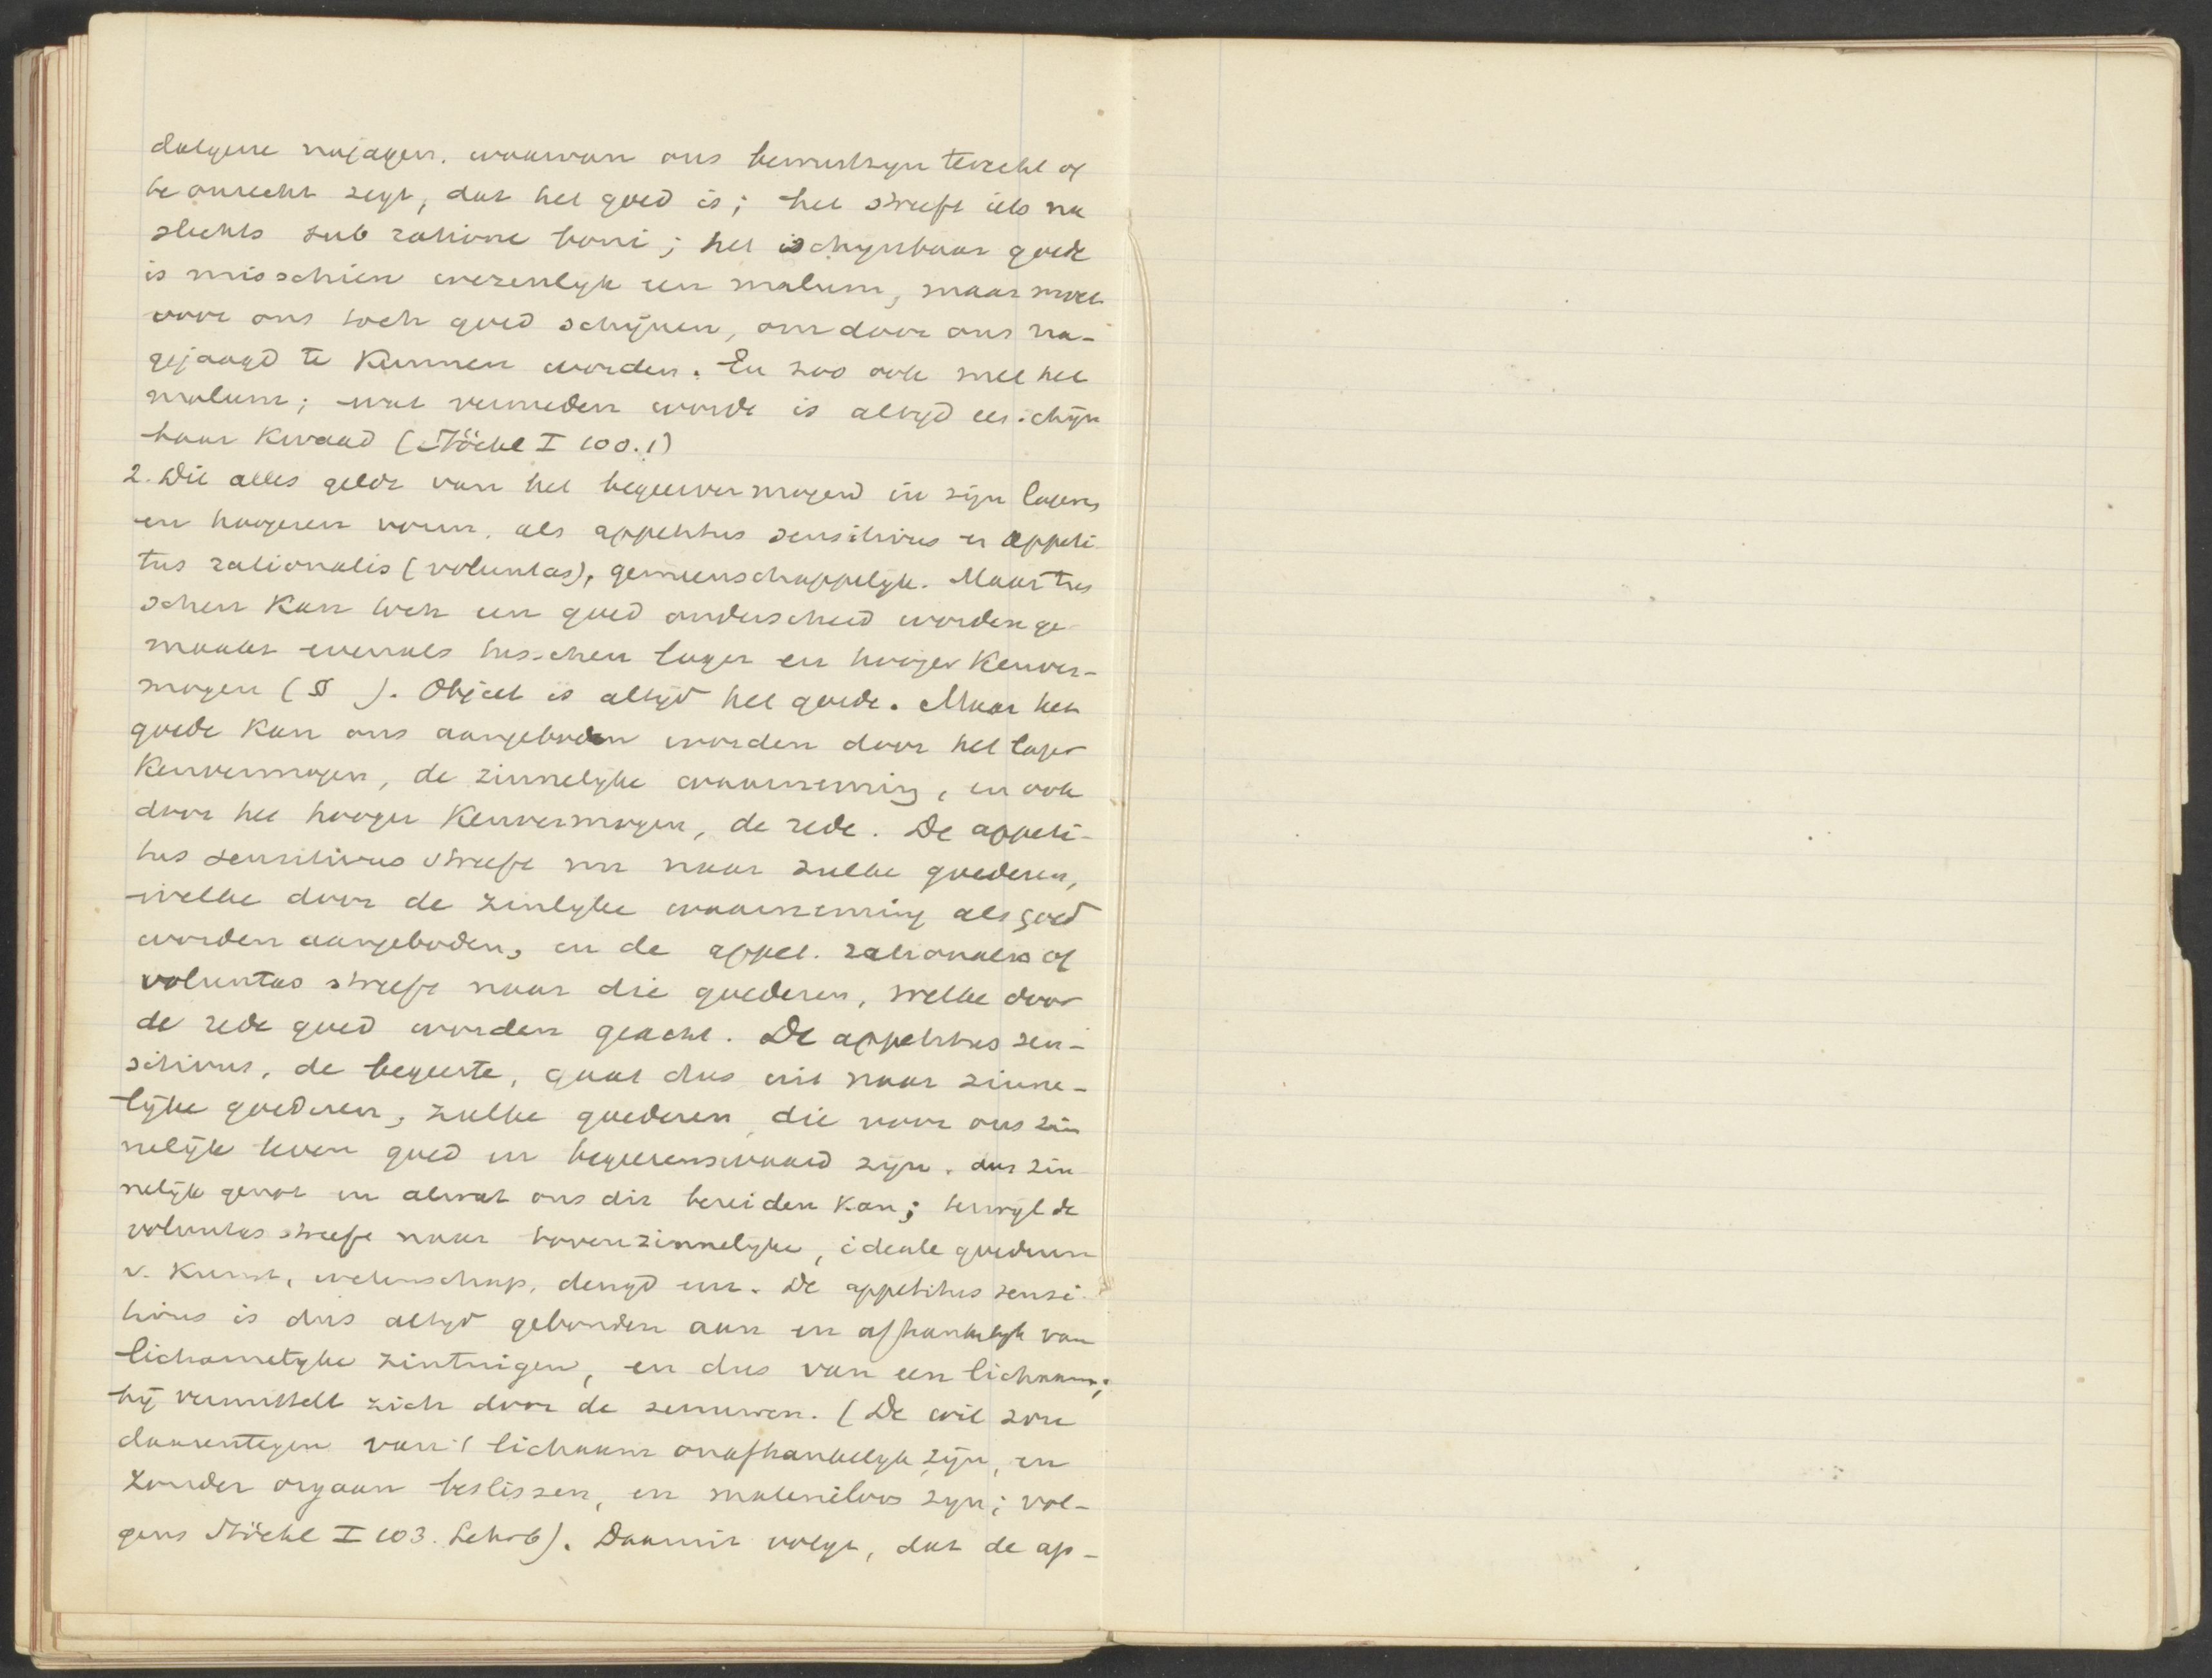 datgene najagen, waarvan ons bewustzijn terecht of
te onrecht zegt, dat het goed is; het streeft iets na
slechts sub ratione boni; het schijnbaar goede
is misschien wezenlijk een malum, maar moet
voor ons toch goed schijnen, om door ons na-
gejaagd te kunnen worden. En zoo ook met het
malum; wat vermeden wordt is altijd een schijn
baar kwaad (Stöckl I 100.1)
2. Dit alles geldt van het begeervermogen in zijn lagere
en hoogeren vorm, als appetitus sensitivus en appeti
tus rationalis (voluntas), gemeenschappelijk. Maar tus
schen kan toch een goed onderscheid worden ge
maakt evenals tusschen lager en hooger Kenver-
mogen (§ ). Object is altijd het goede. Maar het
goede kan ons aangeboden worden door het lager
Kenvermogen, de zinnelijke waarneming, en ook
door het hooger Kenvermogen, de rede. De appeti-
tus sensitivus streeft nu naar zulke goederen,
welke door de zinlijke waarneming als goed
worden aangeboden, en de appet. rationalis of
voluntas streeft naar die goederen, welke door
de rede goed worden geacht. De appetitus sen-
sitivus, de begeerte, gaat dus uit naar zinne-
lijke goederen, zulke goederen, die voor ons zin
nelijk leven goed en begeerenswaard zijn, dus zin
nelijk genot en alwat ons dit bereiden kan; terwijl de
voluntas streeft naar bovenzinnelijke, ideale goederen
v. Kunst, wetenschap, deugd enz. De appetitus sensi
tivus is dus altijd gebonden aan en afhankelijk van
lichamelijke zintuigen, en dus van een lichaam;
hij vermittelt zich door de zenuwen. (De wil zou
daarentegen van 't lichaam onafhankelijk zijn, en
zonder orgaan beslissen, en materieloos zijn; vol-
gens Stöckl I 103. Lehrb). Daaruit volgt, dat de ap-